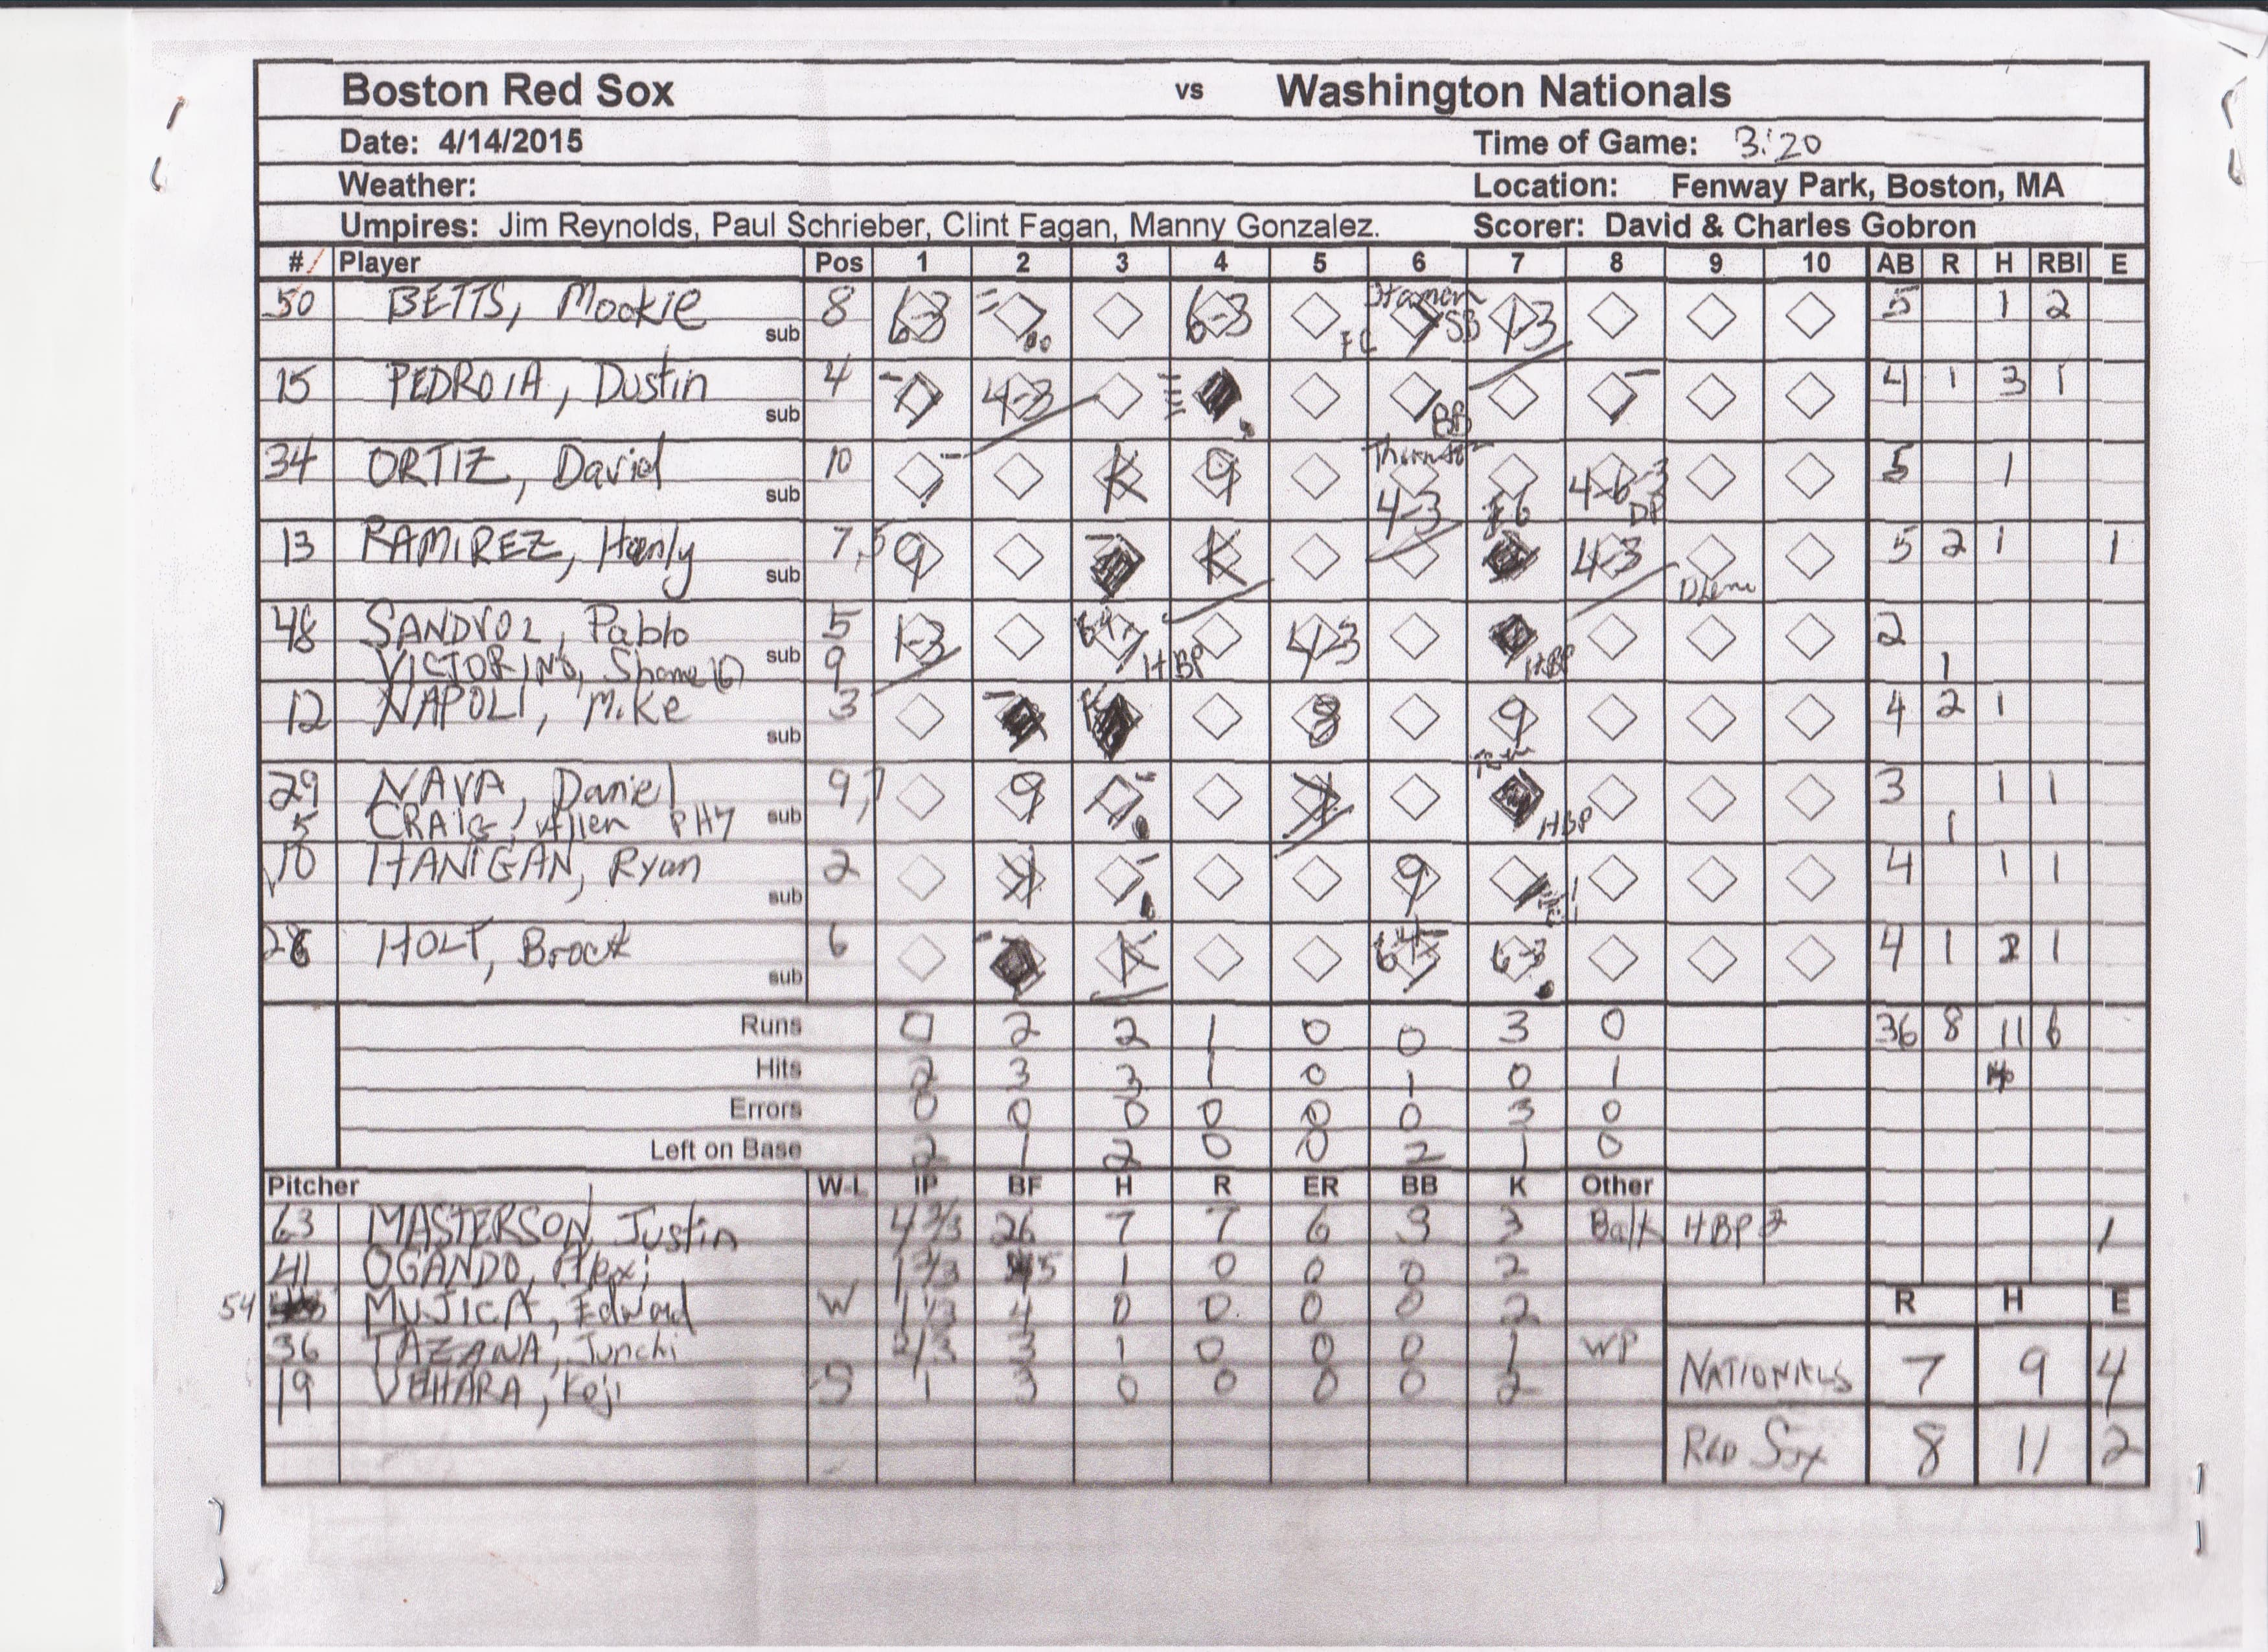 Boston Red Sox vs Washington Nationals
Date: 4/14/2015 Time of Game: 3:20
Weather: Location: Fenway Park, Boston, MA
Umpires: Jim Reynolds, Paul Schrieber, Clint Fagan, Manny Gonzalez. Scorer: David & Charles Gobron
# Player Pos 1 2 3 4 5 6 7 8 9 10 AB R H RBI E
50 BETTS, Mookie 8 6-3 6-3 FC SB 1-3 5 1 2
sub
15 PEDROIA, Dustin 4 4-3 BB 4 1 3 1
sub
34 ORTIZ, David 10 K 9 4-3 4-6-3 DP 5 1
sub
13 RAMIREZ, Hanly 7 9 K 4-3 5 2 1 1
sub
48 Pablo 5 1-3 HBP 4-3 HBP 2
VICTORINO, Shane sub 9 1
12 NAPOLI, Mike 3 8 9 4 2 1
sub
29 NAVA, Daniel 9,7 9 HBP 3 1 1
5 CRAIG, Allen PH7 sub 1
10 HANIGAN, Ryan 2 9 4 1 1
sub
HOLT, Brock 6 K 6-3 4 1 1
sub
Runs 0 2 2 1 0 0 3 0 36 8 11 6
Hits 2 3 3 1 0 1 0 1
Errors 0 0 0 0 0 0 3 0
Left on Base 2 1 2 0 0 2 1 0
Pitcher W-L IP BF H R ER BB K Other
63 MASTERSON, Justin 4 2/3 26 7 7 6 3 3 Balk HBP 2 1
41 OGANDO, Alexi 1 2/3 5 1 0 0 0 2
54 MUJICA, Edward W 1 1/3 4 0 0 0 0 2
36 TAZAWA, Junchi 2/3 3 1 0 0 0 1 WP
19 UEHARA, Koji S 1 3 0 0 0 0 2
R H E
NATIONALS 7 9 4
RED Sox 8 11 2